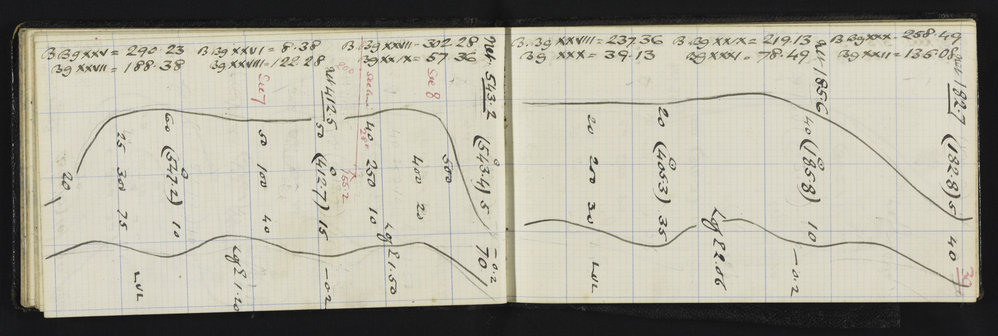 B.Bg XXV = 290.23 B.Bg XXVI = 8.38 B.Bg XXVII = 302.28
Bg XXVII = 188.38 Bg XXVIII = 122.28 Bg XXIX = 57.36
See 7
See 8
Nett 412.5
Nett 543.2
20
25 300 75
60 (547.2) 10
50 100 40
50 (412.7) 15
40 250 10
400 20
500
(543.4) 5
70
-0.2
-0.2
Lvl
Lg E 1.20
Lg E 1.50
B.Bg XXVIII = 237.36 B.Bg XXIX = 219.13 B.Bg XXX = 258.49
Bg XXX = 39.13 Bg XXXI = 78.49 Bg XXXII = 135.08
Nett 185.6
Nett 182.7
20 200 30
20 (405.3) 35
40 (185.8) 10
(182.8) 5
40
Lvl
Lg E 2.06
-0.2
39